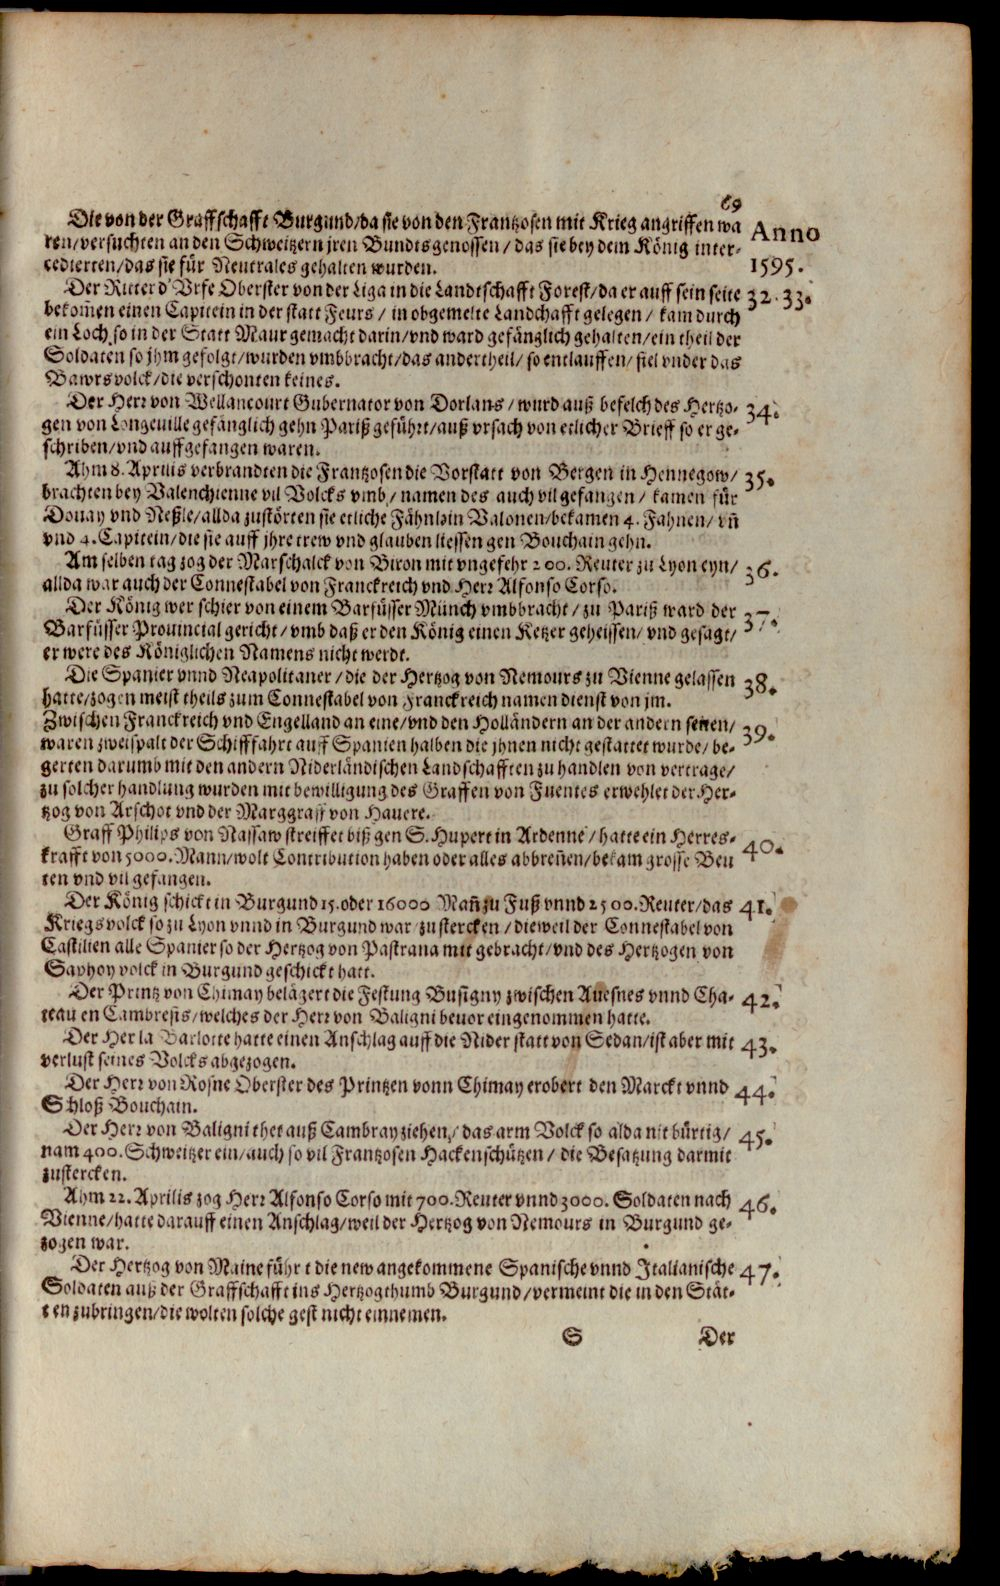 69
Die von der Graffschafft Burgund/da sie von den Frantzosen mit Krieg angriffen wa
ren/versuchten an den Schweitzern jren Bundtsgenossen/das sie bey dem König inter-
cedierten/das sie für Neutrales gehalten wurden.
Anno
1595.
Der Ritter d'Vrfe Oberster von der Liga in die Landtschafft Forest/da er auff sein seite 32.33.
bekom̃en einen Capitein in der statt Feurs / in obgemelte Landchafft gelegen / kam durch
ein Loch so in der Statt Maur gemacht darin/vnd ward gefänglich gehalten/ein theil der
Soldaten so jhm gefolgt/wurden vmbbracht/das ander theil/ so entlauffen/ fiel vnder das
Bawrsvolck/die verschonten keines.
Der Herr von Wellancourt Gubernator von Dorlans / wurd auß befelch des Hertzo- 34.
gen von Longeuille gefänglich gehn Pariß geführt/auß vrsach von etlicher Brieff so er ge-
schriben/vnd auffgefangen waren.
Ahm 8. Aprilis verbrandten die Frantzosen die Vorstatt von Bergen in Hennegow/ 35.
brachten bey Valenchienne vil Volcks vmb/ namen des auch vil gefangen / kamen für
Douay vnd Neßle/allda zustörten sie etliche Fähnlein Valonen/bekamen 4. Fahnen/ vñ
vnd 4. Capitein/die sie auff jhre trew vnd glauben liessen gen Bouchain gehn.
Am selben tag zog der Marschalck von Biron mit vngefehr 200. Reuter zu Lyon eyn/ 36.
allda war auch der Connestabel von Franckreich vnd Herr Alfonso Corso.
Der König wer schier von einem Barfüsser Münch vmbbracht / zu Pariß ward der 37.
Barfüsser Prouincial gericht / vmb daß er den König einen Ketzer geheissen/ vnd gesagt/
er were des Königlichen Namens nicht werdt.
Die Spanier vnnd Neapolitaner / die der Hertzog von Nemours zu Vienne gelassen 38.
hatte/zogen meist theils zum Connestabel von Franckreich namen dienst von jm.
Zwischen Franckreich vnd Engelland an eine/vnd den Holländern an der andern seiten/ 39.
waren zweispalt der Schifffahrt auff Spanien halben die jhnen nicht gestattet wurde/ be-
gerten darumb mit den andern Niderländischen Landschafften zu handlen von vertrage/
zu solcher handlung wurden mit bewilligung des Graffen von Fuentes erwehlet der Her-
tzog von Arschot vnd der Marggraff von Hauere.
Graff Philips von Nassaw streiffet biß gen S. Hupert in Ardenne / hatte ein Herres- 40.
krafft von 5000. Mann/wolt Contribution haben oder alles abbreñen/bekam grosse Beu
ten vnd vil gefangen.
Der König schickt in Burgund 15. oder 16000 Mañ zu Fuß vnnd 2500. Reuter/das 41.
Kriegsvolck so zu Lyon vnnd in Burgund war zustercken / dieweil der Connestabel von
Castilien alle Spanier so der Hertzog von Pastrana mit gebracht/vnd des Hertzogen von
Saphoy volck in Burgund geschickt hatt.
Der Printz von Chimay belägert die Festung Busigny zwischen Auesnes vnnd Cha- 42.
teau en Cambresis/welches der Herr von Baligni beuor eingenommen hatte.
Der Her la Barlotte hatte einen Anschlag auff die Nider statt von Sedan/ist aber mit 43.
verlust seines Volcks abgezogen.
Der Herr von Rosne Oberster des Printzen vonn Chimay erobert den Marckt vnnd 44.
Schloß Bouchain.
Der Herr von Baligni thet auß Cambray ziehen/ das arm Volck so alda nit bürtig/ 45.
nam 400. Schweitzer ein/auch so vil Frantzosen Hackenschützen / die Besatzung darmit
zustercken.
Ahm 22. Aprilis zog Herr Alfonso Corso mit 700. Reuter vnnd 3000. Soldaten nach 46.
Vienne/hatte darauff einen Anschlag/weil der Hertzog von Nemours in Burgund ge-
zogen war.
Der Hertzog von Maine führt die new angekommene Spanische vnnd Italianische 47.
Soldaten auß der Graffschafft ins Hertzogthumb Burgund/vermeint die in den Stät-
ten zubringen/die wolten solche gest nicht einnemen.
S Der